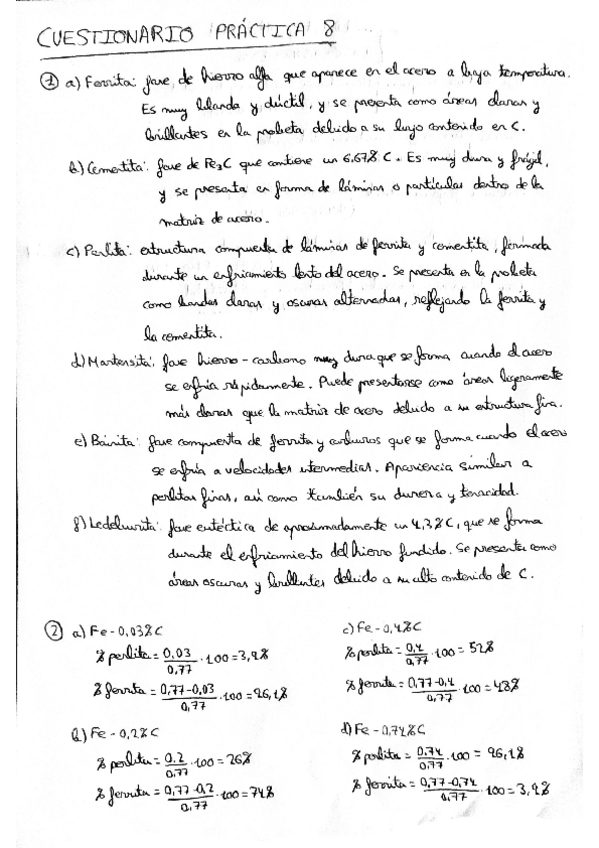 CUESTIONARIO PRÁCTICA 8
① a) Ferrita: fase de hierro alfa que aparece en el acero a baja temperatura.
Es muy blanda y dúctil, y se presenta como áreas claras y
brillantes en la probeta debido a su bajo contenido en C.
b) Cementita: fase de Fe3C que contiene un 6.67% C. Es muy dura y frágil,
y se presenta en forma de láminas o partículas dentro de la
matriz de acero.
c) Perlita: estructura compuesta de láminas de ferrita y cementita, formada
durante un enfriamiento lento del acero. Se presenta en la probeta
como bandas claras y oscuras alternadas, reflejando la ferrita y
la cementita.
d) Martensita: fase hierro-carbono muy dura que se forma cuando el acero
se enfría rápidamente. Puede presentarse como áreas ligeramente
más claras que la matriz de acero debido a su estructura fina.
e) Bainita: fase compuesta de ferrita y carburos que se forma cuando el acero
se enfría a velocidades intermedias. Apariencia similar a
perlitas finas, así como también su dureza y tenacidad.
f) Ledeburita: fase eutéctica de aproximadamente un 4,3% C, que se forma
durante el enfriamiento del hierro fundido. Se presenta como
áreas oscuras y brillantes debido a su alto contenido de C.
② a) Fe-0,03%C
% perlita = 0,03/0,77 · 100 = 3,9%
% ferrita = 0,77-0,03/0,77 · 100 = 96,1%
b) Fe-0,2%C
% perlita = 0.2/0,77 · 100 = 26%
% ferrita = 0,77-0,2/0,77 · 100 = 74%
c) Fe-0,4%C
% perlita = 0,4/0,77 · 100 = 52%
% ferrita = 0,77-0,4/0,77 · 100 = 48%
d) Fe-0,74%C
% perlita = 0.74/0,77 · 100 = 96,1%
% ferrita = 0,77-0,74/0,77 · 100 = 3,9%